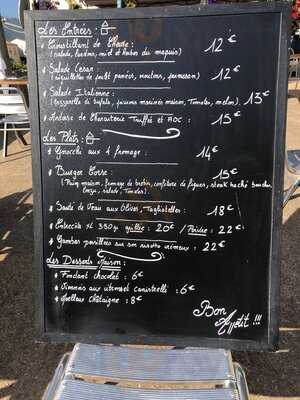 Les Entrées :
* Croustillant de Chèvre : 12€
(salade, lardons, miel et herbes du maquis)
* Salade César : 12€
(aiguillettes de poulet panées, croutons, parmesan)
* Salade Italienne : 13€
(mozzarella di bufala, jambon maison, Tomates, melon)
* Ardoise de Charcuterie Truffée et AOC : 15€
Les Plats :
* Gnocchi aux 4 fromages : 14€
* Burger Corse : 15€
(Pain maison, fromage de brebis, confiture de figues, steak haché boucher
salade, Tomates)
* Sauté de Veau aux Olives, Tagliatelles : 18€
* Entrecôte XL 350gr grillée : 20€ / Poivre : 22€
* Gambas parillées sur son risotto crémeux : 22€
Les Desserts Maison :
* Fondant chocolat : 6€
* aux canistrelli : 6€
* Moelleux Châtaigne : 8€
Bon
Appétit !!!